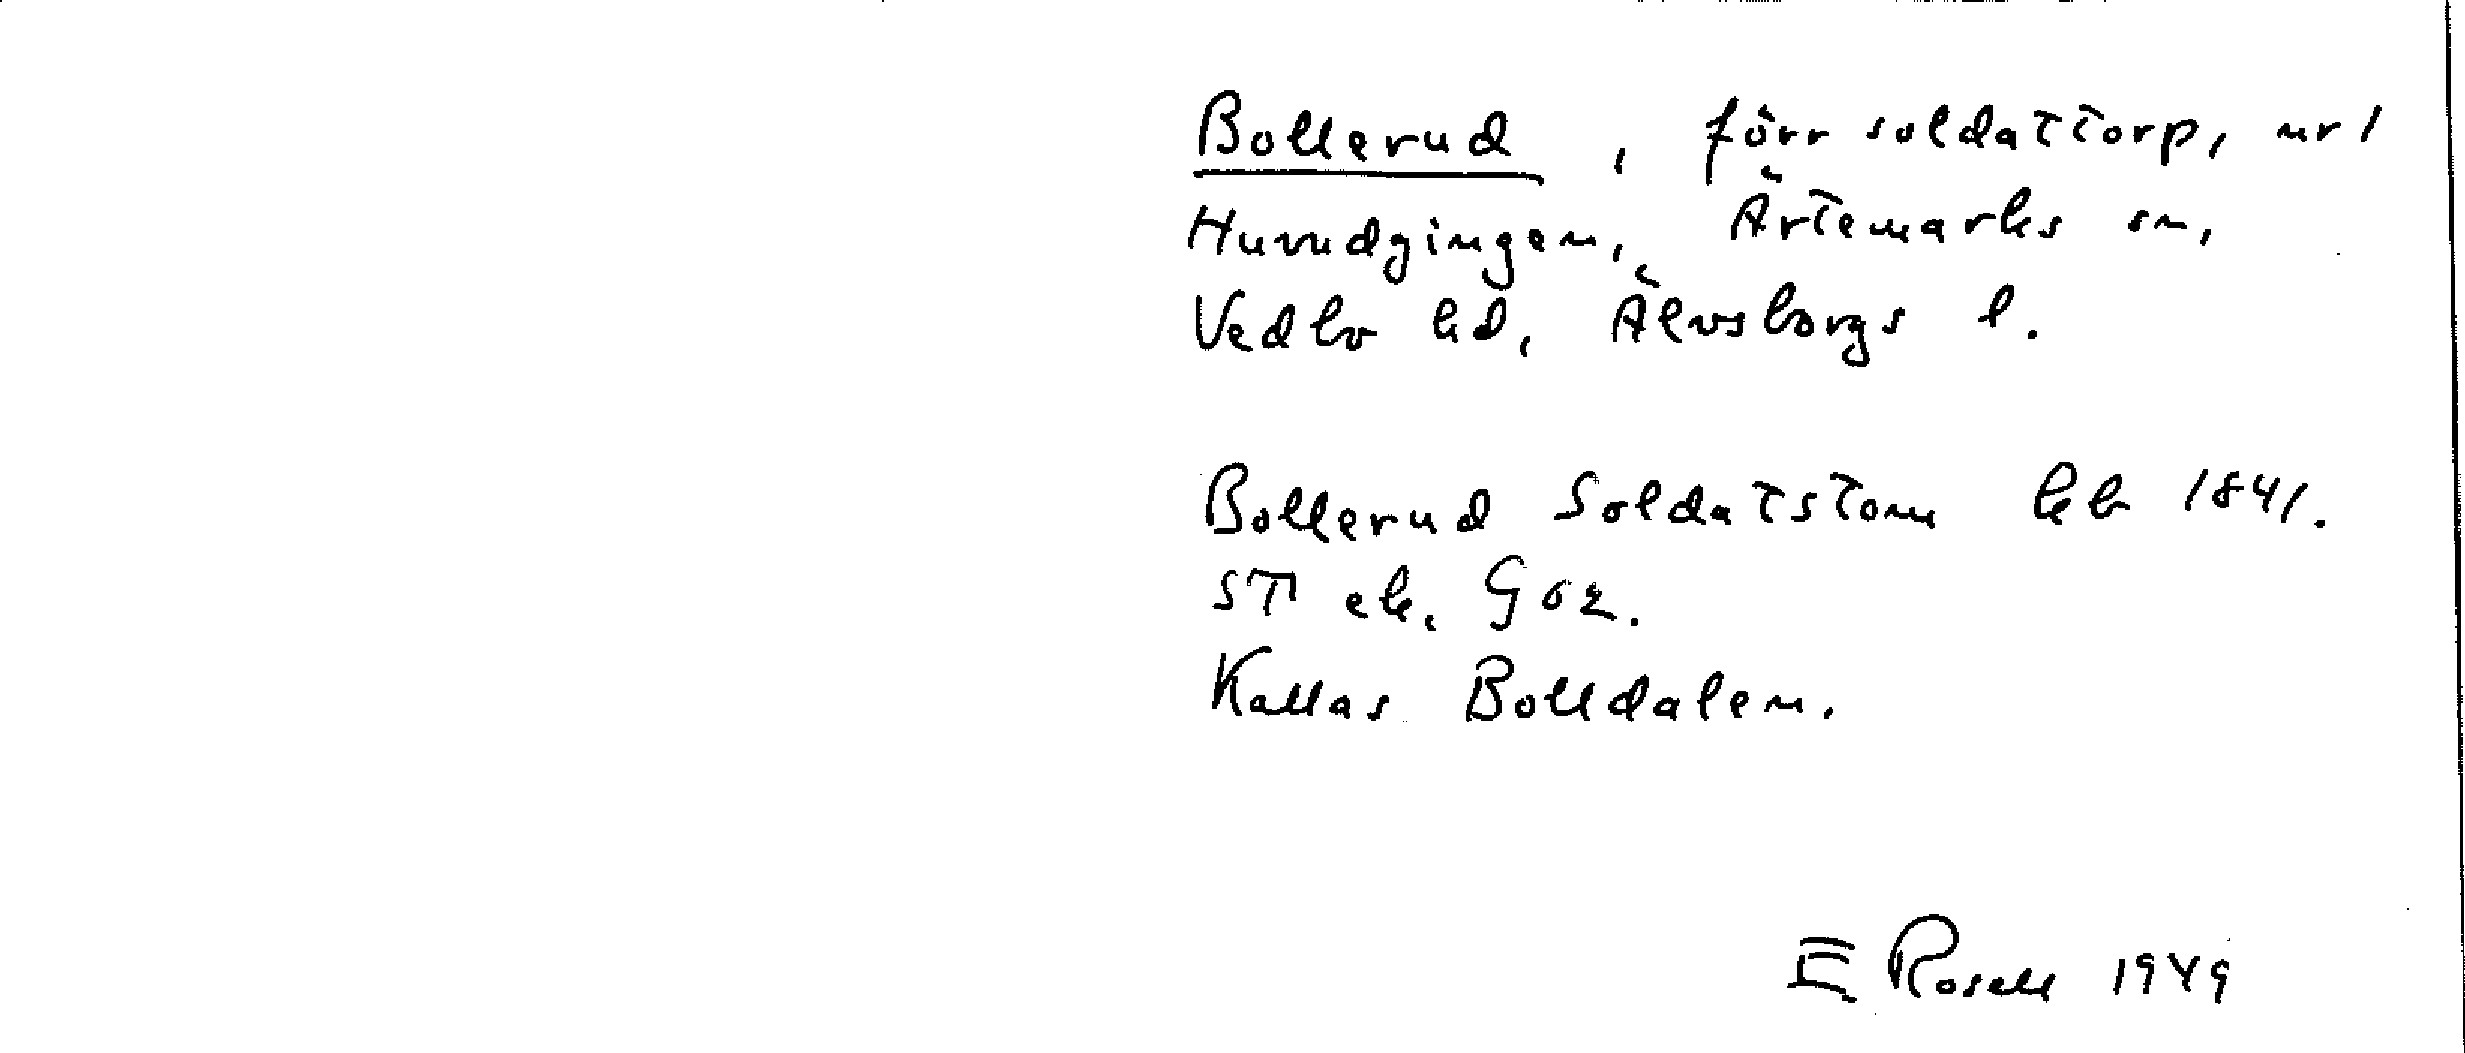 Bollerud, förr soldattorp, nr 1
Huvudgingen, Ärtemarks sn,
Vedbo hd, Älvsborgs l.
Bollerud Soldatstom hb 1841.
ST ek.
Kallas Bolldalen.
E Rosell 1949